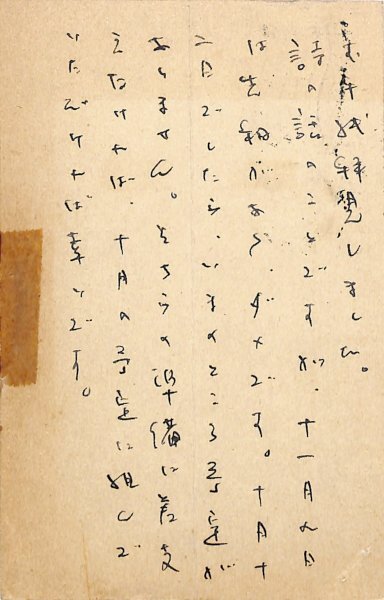 お手紙拝見しました。
詩の話のことですが、十一月九日
は先約があり、ダメです。十月十
二日でしたら、いまのところ予定が
ありません。そちらの準備に差支
えなければ、十月の予定に組んで
いただければ幸いです。